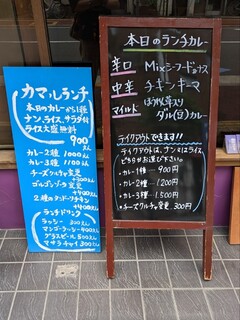 カマルランチ
本日のカレーから1種
ナン、ライス、サラダ付
ライス大盛無料
900えん
カレー2種 1000えん
カレー3種 1100えん
チーズクルチャ変更
+300えん
ゴルゴンゾーラ変更
+400えん
2種のタンドーリチキン
+400えん
ランチドリンク
ラッシー 300えん
マンゴーラッシー400えん
グラスビール500えん
マサラチャイ300えん
本日のランチカレー
辛口 Mixシーフードナス
中辛 チキンキーマ
マイルド ほうれん草入り
ダル(豆)カレー
テイクアウトできます!!
テイクアウトは、ナンまたはライス
どちらかお選び下さい。
・カレー1種… 900円
・カレー2種…1200円
・カレー3種…1500円
・チーズクルチャ変更 300円